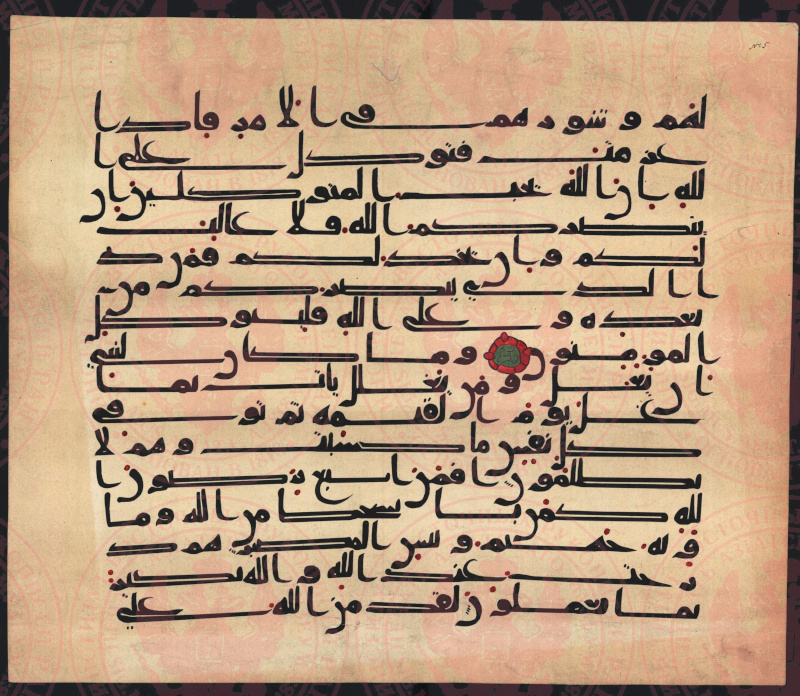 № 5
لهم و شور هم فى الامر فاذا
عزمت فتوكل على ا
لله ان الله يحب المتوكلين ان
ينصركم الله فلا غالب
لكم و ان يخذلكم فمن ذ
ا الذى ينصركم من
بعده و على الله فليتوكل
المومنون و ما كان لنبى
ان يغل و من يغلل يات بما
غل يوم القيمه ثم توفى
كل نفس ما كسبت و هم لا
يظلمون افمن اتبع رضون ا
لله كمن با بسخط من الله و ما
و يه جهنم و بيس المصير هم د
رجت عند الله و الله بصير
بما يعملون لقد من الله على